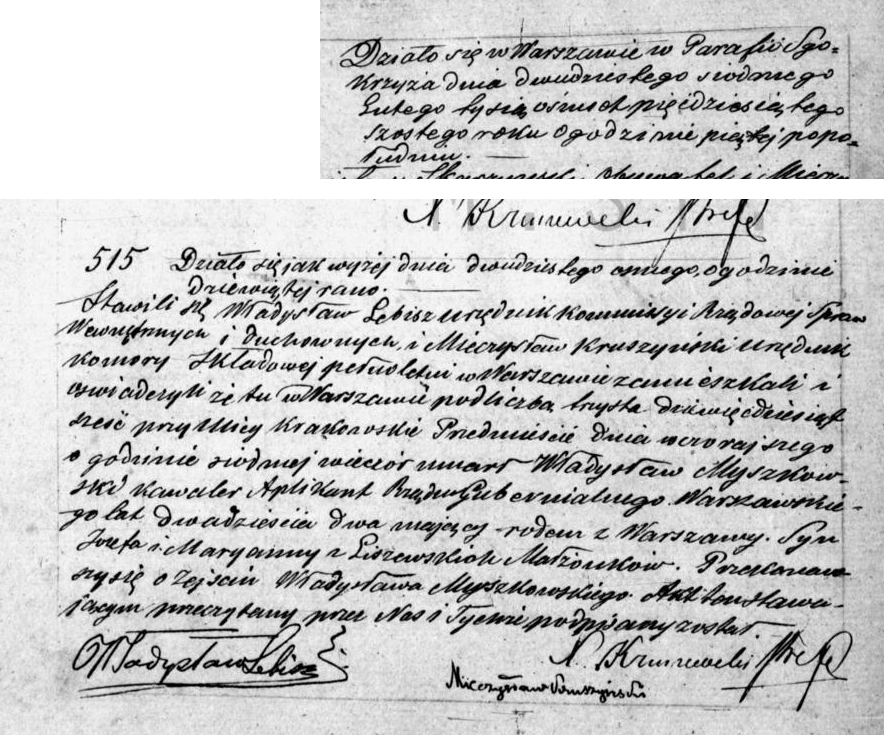 Działo się w Warszawie w Parafii Sgo=
Krzyża dnia dwudziestego siódmego
Lutego tysiąc ośmset pięćdziesiątego
szóstego roku o godzinie piątej popo=
łudniu.
Obywatel i
N. Krunewski
515 Działo się jak wyżej dnia dwudziestego osmego, o godzinie
dziewiątej rano.
Stawili się Władysław Lebisz urzędnik Kommissyi Rządowej Spraw
Wewnętrznych i Duchownych, i Mieczysław Kruszyński urzędnik
Komory Składowej pełnoletni w Warszawie zamieszkali i
oswiadczyli że tu w Warszawie pod liczbą trzysta dziewięćdziesiąt
sześć przy Ulicy Krakowskie Przedmieście dnia wczorajszego
o godzinie siódmej wieczór umarł Władysław Myszkow-
ski Kawaler Aplikant Rządu Gubernialnego Warszawskie-
go lat dwadzieścia dwa mający rodem z Warszawy. Syn
Józefa i Maryanny z Liszewskich Małżonków. Przekonaw
szy się o zejściu Władysława Myszkowskiego. Akt ten stawa-
jącym przeczytany przez Nas i Tychże podpisany został.
Władysław Lebisz
N. Krunewski
Mieczysław Kruszyński